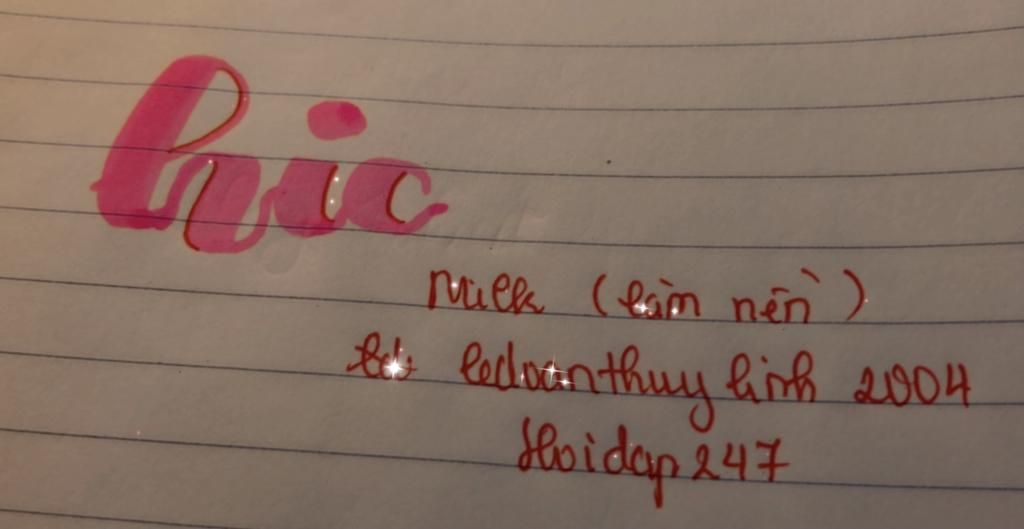 hic
Milk (làm nền)
ledoanthuylinh2004
Hoidap247